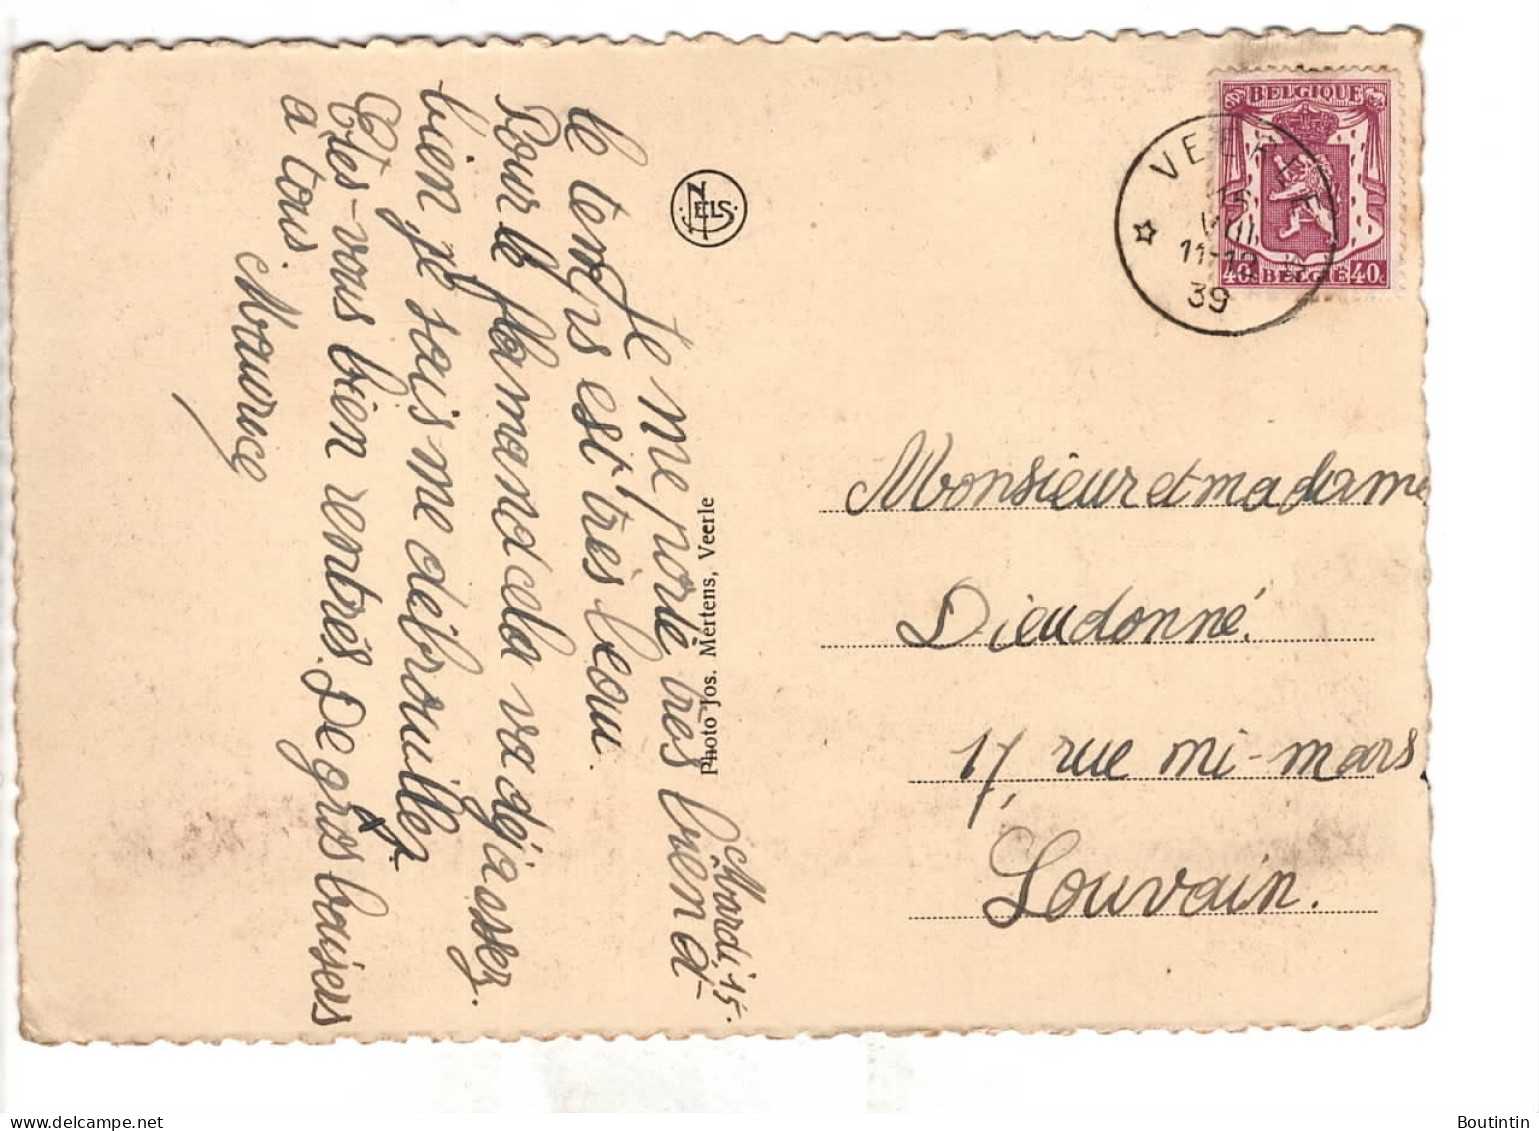 Mardi, 15.
Je me porte très bien et
le temps est très beau.
Pour le flamand cela va déjà assez
bien, je sais me débrouiller
Êtes-vous bien rentrés. De gros baisers
à tous.
Maurice
NELS
Photo Jos. Mertens, Veerle
BELGIQUE
40c BELGIE 40c
VEERLE
15
VIII
11-12
39
Monsieur et madame
Dieudonné.
17, rue mi-mars
Louvain.
Boutintin